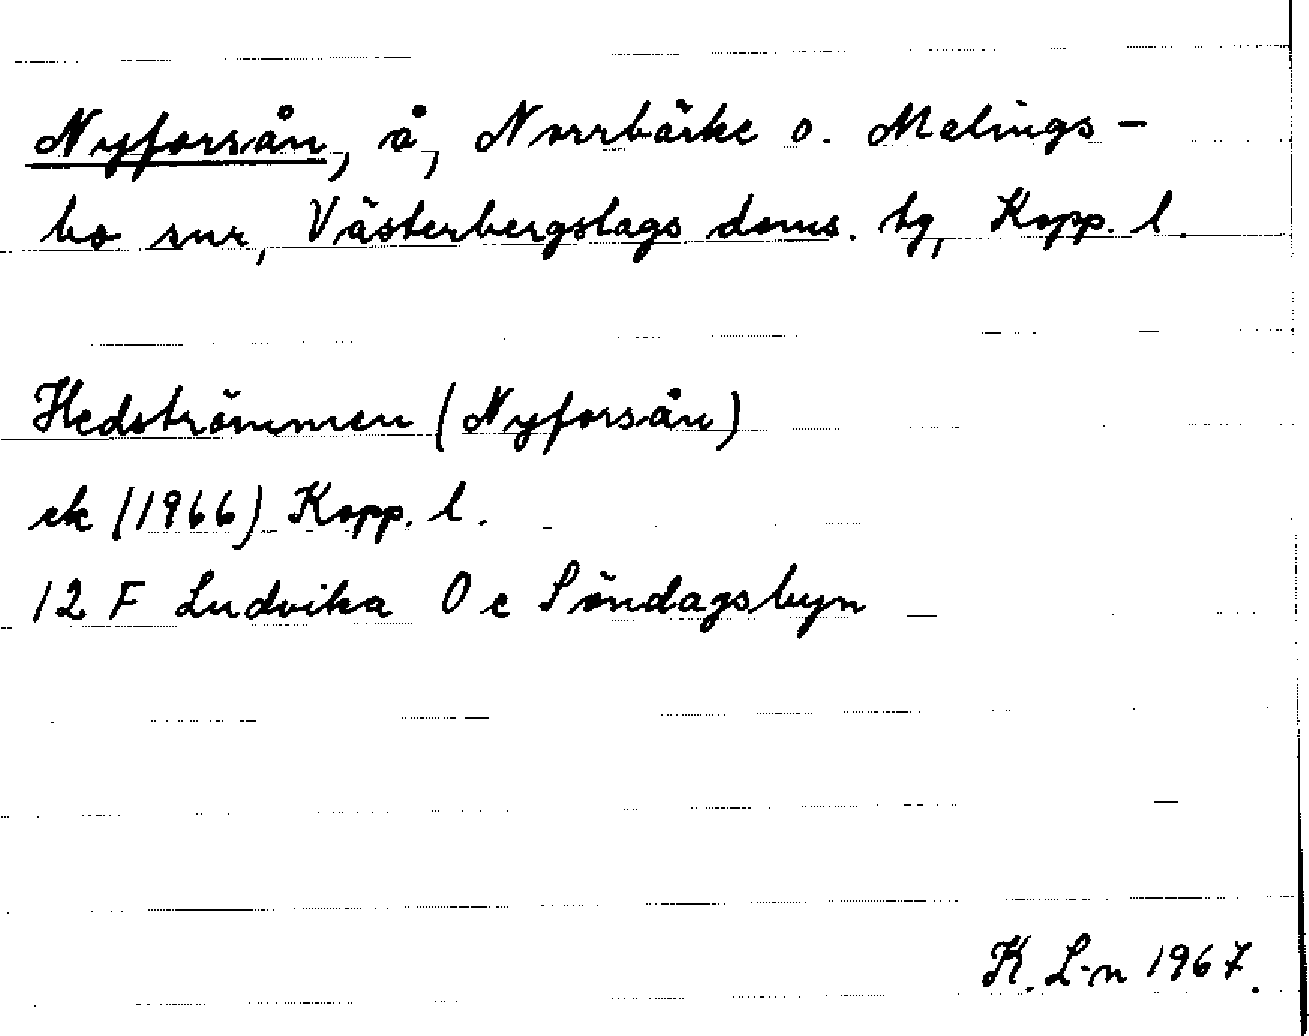 Nyforsån, å, Norrbärke o. Malings-
bo snr, Västerbergslags doms. tg, Kopp. l.
Hedströmmen (Nyforsån)
ek (1966) Kopp. l.
12 F Ludvika 0 e Söndagsbyn
K. L-n 1967.